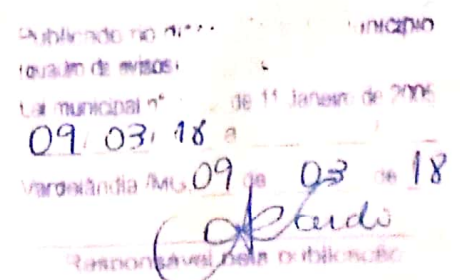 Publicado no município
(quadro de avisos)
Lei municipal nº de 11 Janeiro de
09/03/18 a
Varzelândia/MG, 09 de 03 de 18
Responsável pela publicação